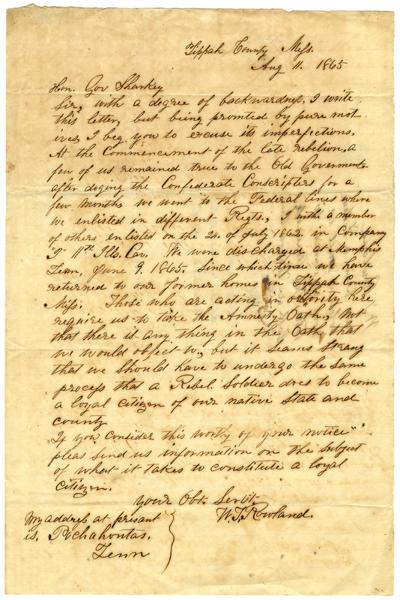 Tippah County Miss.
Aug 11. 1865
Hon. Gov Sharkey
Sir, with a degree of backwardness, I write
this letter, but being promted by pure mot
ives, I beg you to excuse its imperfections.
At the Commencement of the late rebelion, a
few of us remained true to the Old Goverment
after doging the Confederate Conscripters for a
few months we went to the Federal lines where
we enlisted in different Regts, I with a number
of others enlisted on the 24 of July 1862 in Company
11th Ills. Cav. We were discharged at Memphis
Tenn, June 9. 1865. Since which time we have
returned to our former homes in Tippah County
Miss. Those who are acting in authority here
require us to take the Amnesty Oath, Not
that there is any thing in the Oath, that
we would object to, but it seams strang
that we should have to undergo the same
process that a Rebel Soldier dres to become
a loyal citizen of our native State and
county
If you consider this worthy of your notice
pleas send us information on the subject
of what it takes to constitute a loyal
citizen.
your Obt. Servt.
W. T. Rowland.
My address at presant
is, Pochahontas,
Tenn